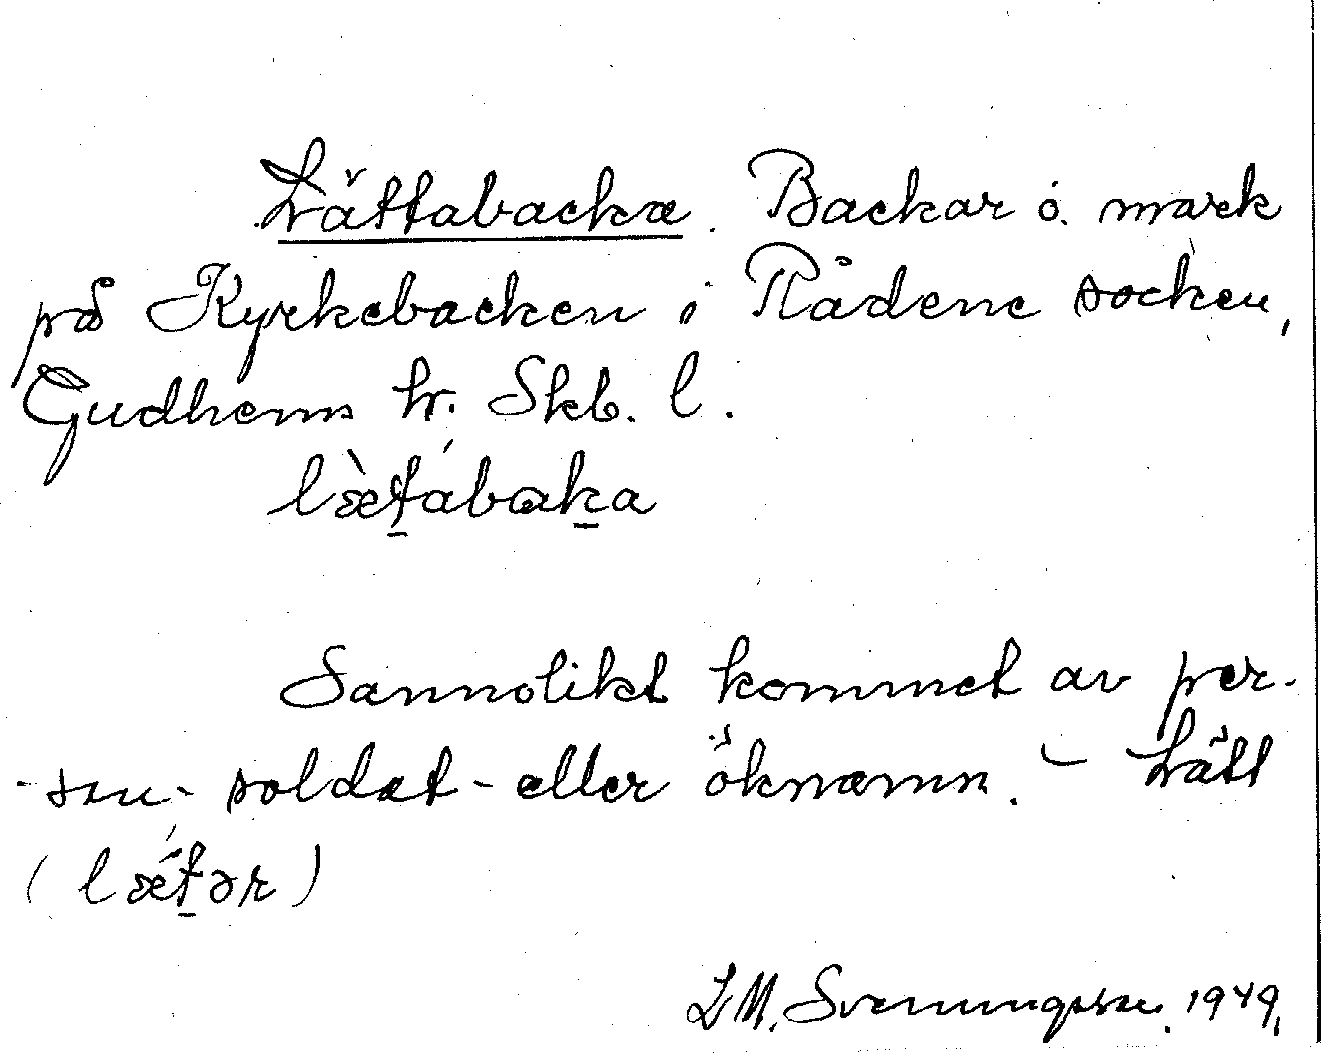 Lättabacka. Backar o. mark
på Kyrkebacken i Rådene socken,
Gudhems hr. Skb. l.
læ̀t̠ábak̠a
Sannolikt kommet av per-
-son- soldat- eller öknamn. – Lätt
(lǽt̠ər)
L M. Svenungsson. 1949.